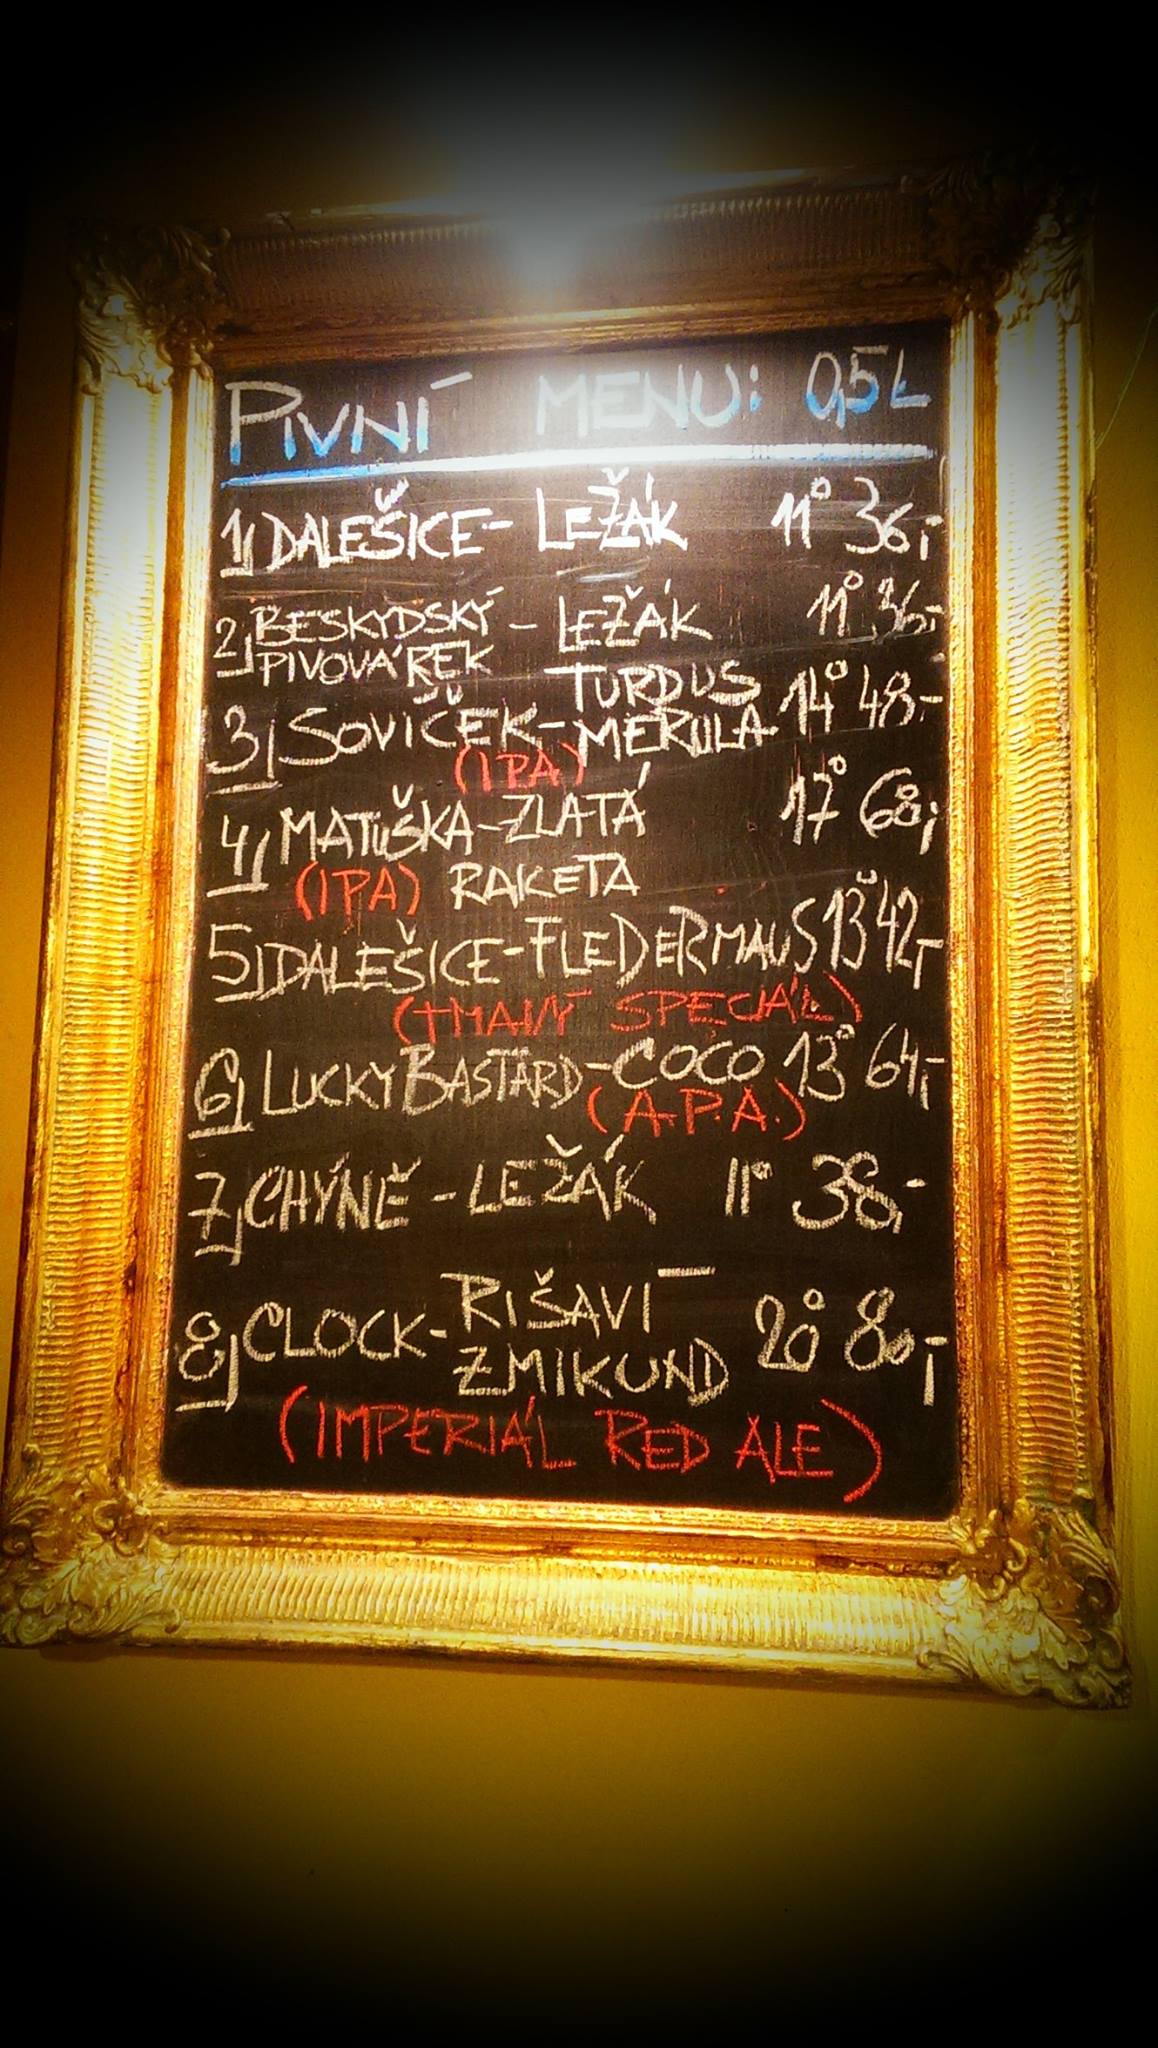 PIVNÍ MENU: 0,5L
1, DALEŠICE - LEŽÁK 11° 36,-
2, BESKYDSKÝ PIVOVÁREK - LEŽÁK 11° 36,-
3, SOVIČEK - TURDUS MERULA 14° 48,-
(IPA)
4, MATUŠKA - ZLATÁ 17° 68,-
(IPA) RAKETA
5, DALEŠICE - FLEDERMAUS 13° 42,-
(TMAVÝ SPECIÁL)
6, LUCKY BASTARD - COCO 13° 64,-
(A.P.A.)
7, CHÝNĚ - LEŽÁK 11° 38,-
8, CLOCK - RIŠAVÍ ZMIKUND 20° 80,-
(IMPERIÁL RED ALE)